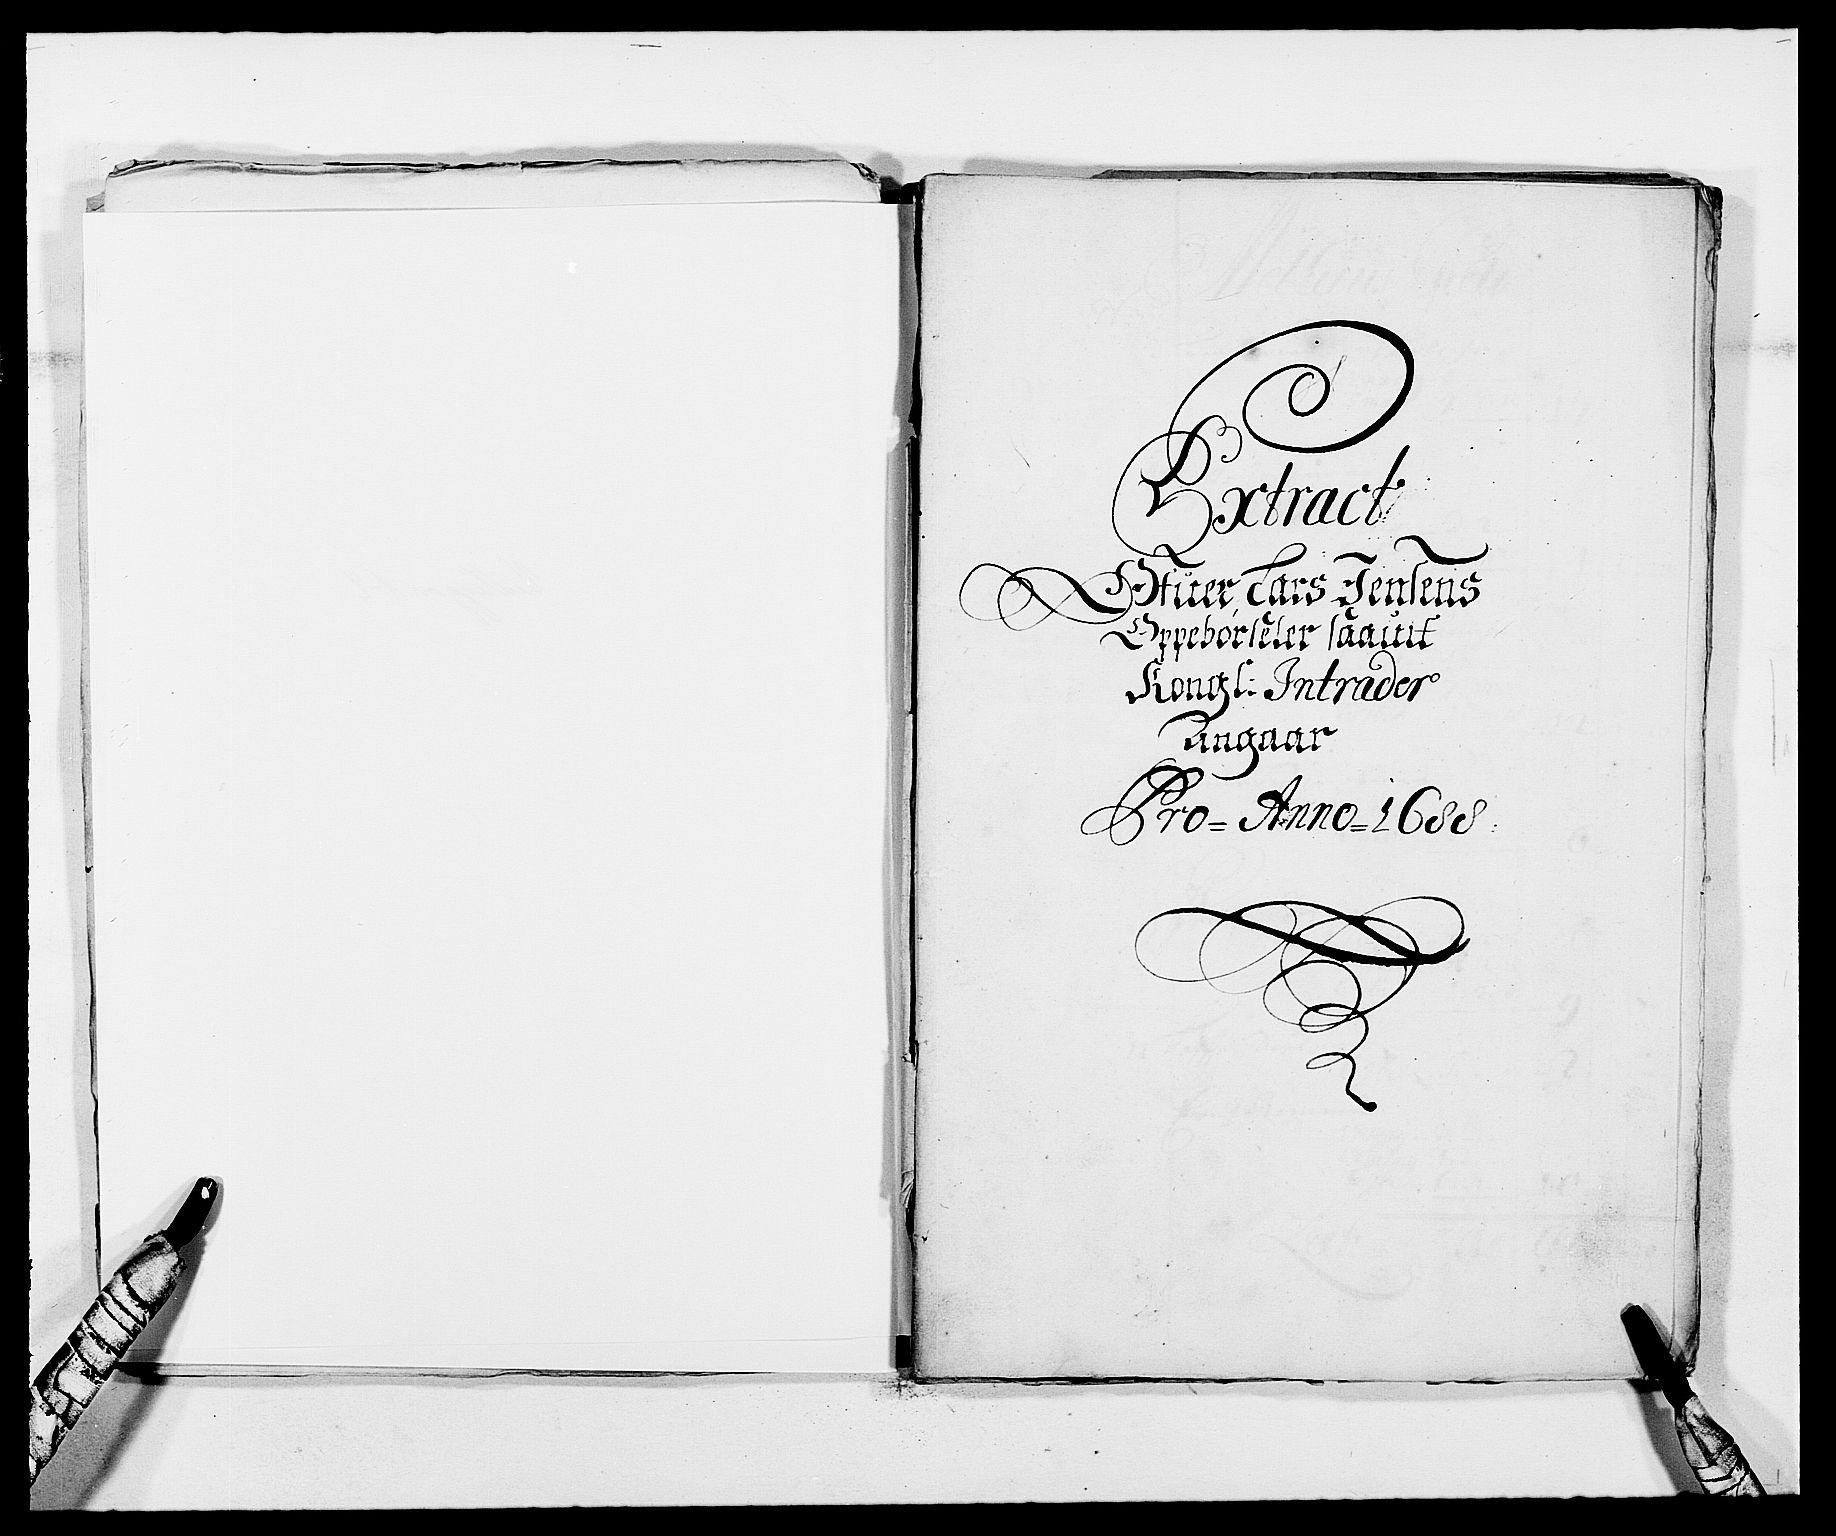 Extract
Ofuer Lars Jensens
Oppebørseler saauit
Kongl: Intrader
Angaar
Pro= Anno=1688